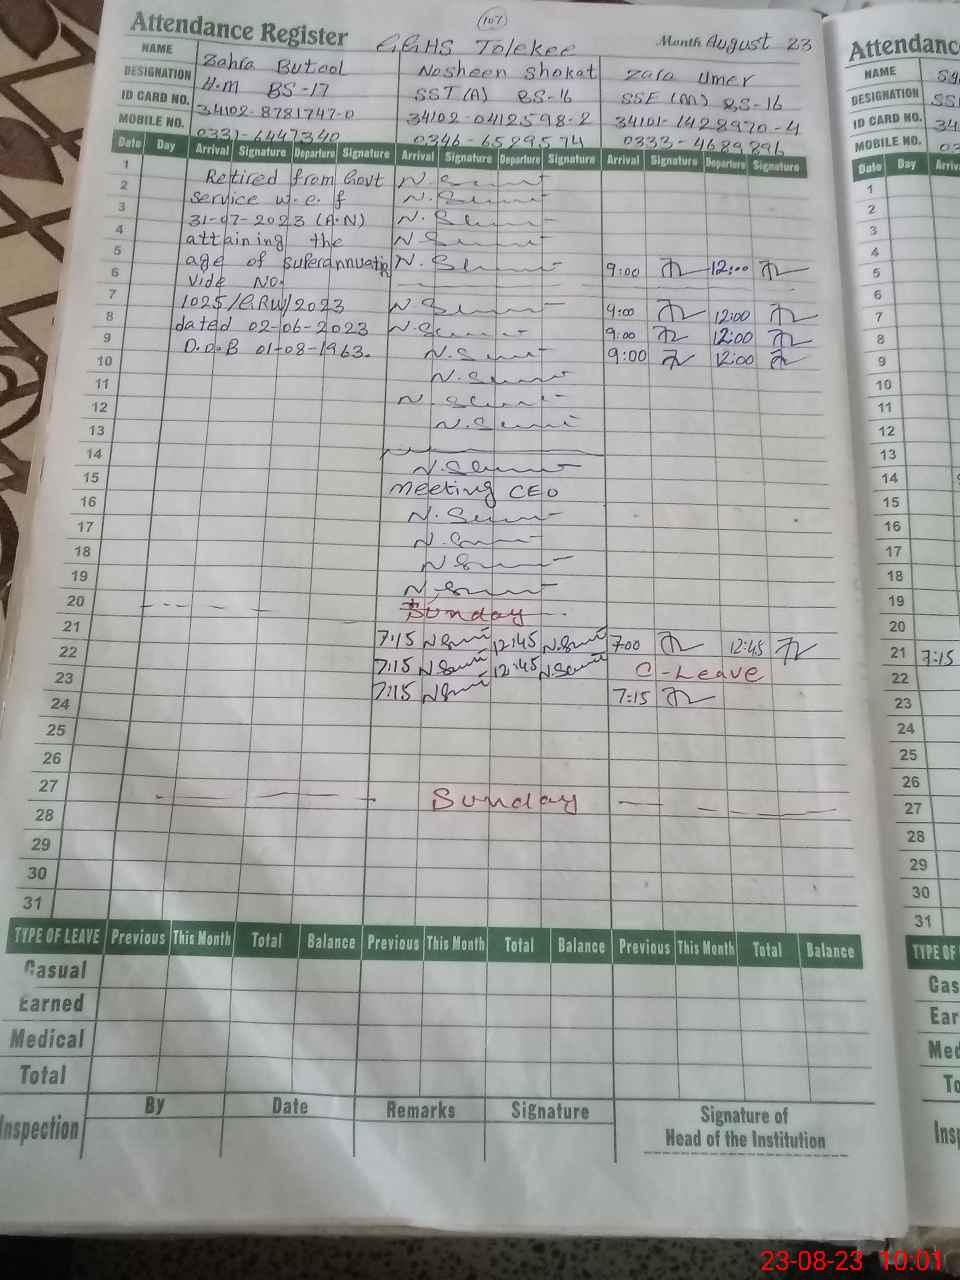 107
Attendance Register GGHS Tolekee Month August 23
NAME Zahra Butool Nosheen Shokat Zara Umer
DESIGNATION H.M BS-17 SST(A) BS-16 SSE (M) BS-16
ID CARD NO. 34102-8781747-0 34102-0412598-2 34101-1428970-4
MOBILE NO. 0331-6447340 0346-6529574 0333-4689896
Date Day Arrival Signature Departure Signature Arrival Signature Departure Signature Arrival Signature Departure Signature
1 Retired from Govt
2 service w.e.f
3 31-07-2023 (A.N)
4 attaining the
5 age of superannuation 9:00 12:00
6 Vide No.
7 1025/GRW/2023 9:00 12:00
8 dated 02-06-2023 9:00 12:00
9 D.O.B 01-08-1963. 9:00 12:00
10
11
12
13
14
15 Meeting CEO
16
17
18
19
20 Sunday
21 7:15 12:45 7:00 12:45
22 7:15 12:45 C-Leave
23 7:15 7:15
24
25
26
27 Sunday
28
29
30
31
TYPE OF LEAVE Previous This Month Total Balance Previous This Month Total Balance Previous This Month Total Balance
Casual
Earned
Medical
Total
Inspection By Date Remarks Signature
Signature of
Head of the Institution
Attendanc
NAME
DESIGNATION SS
ID CARD NO. 34
MOBILE NO. 03
Date Day Arriv
1
2
3
4
5
6
7
8
9
10
11
12
13
14
15
16
17
18
19
20
21 7:15
22
23
24
25
26
27
28
29
30
31
TYPE OF
Cas
Ear
Med
To
Insp
23-08-23 10:01